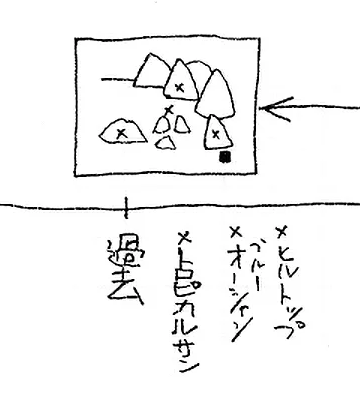 ×ヒルトップ
ブルー
×オーシャン
×トロピカルサン
過去